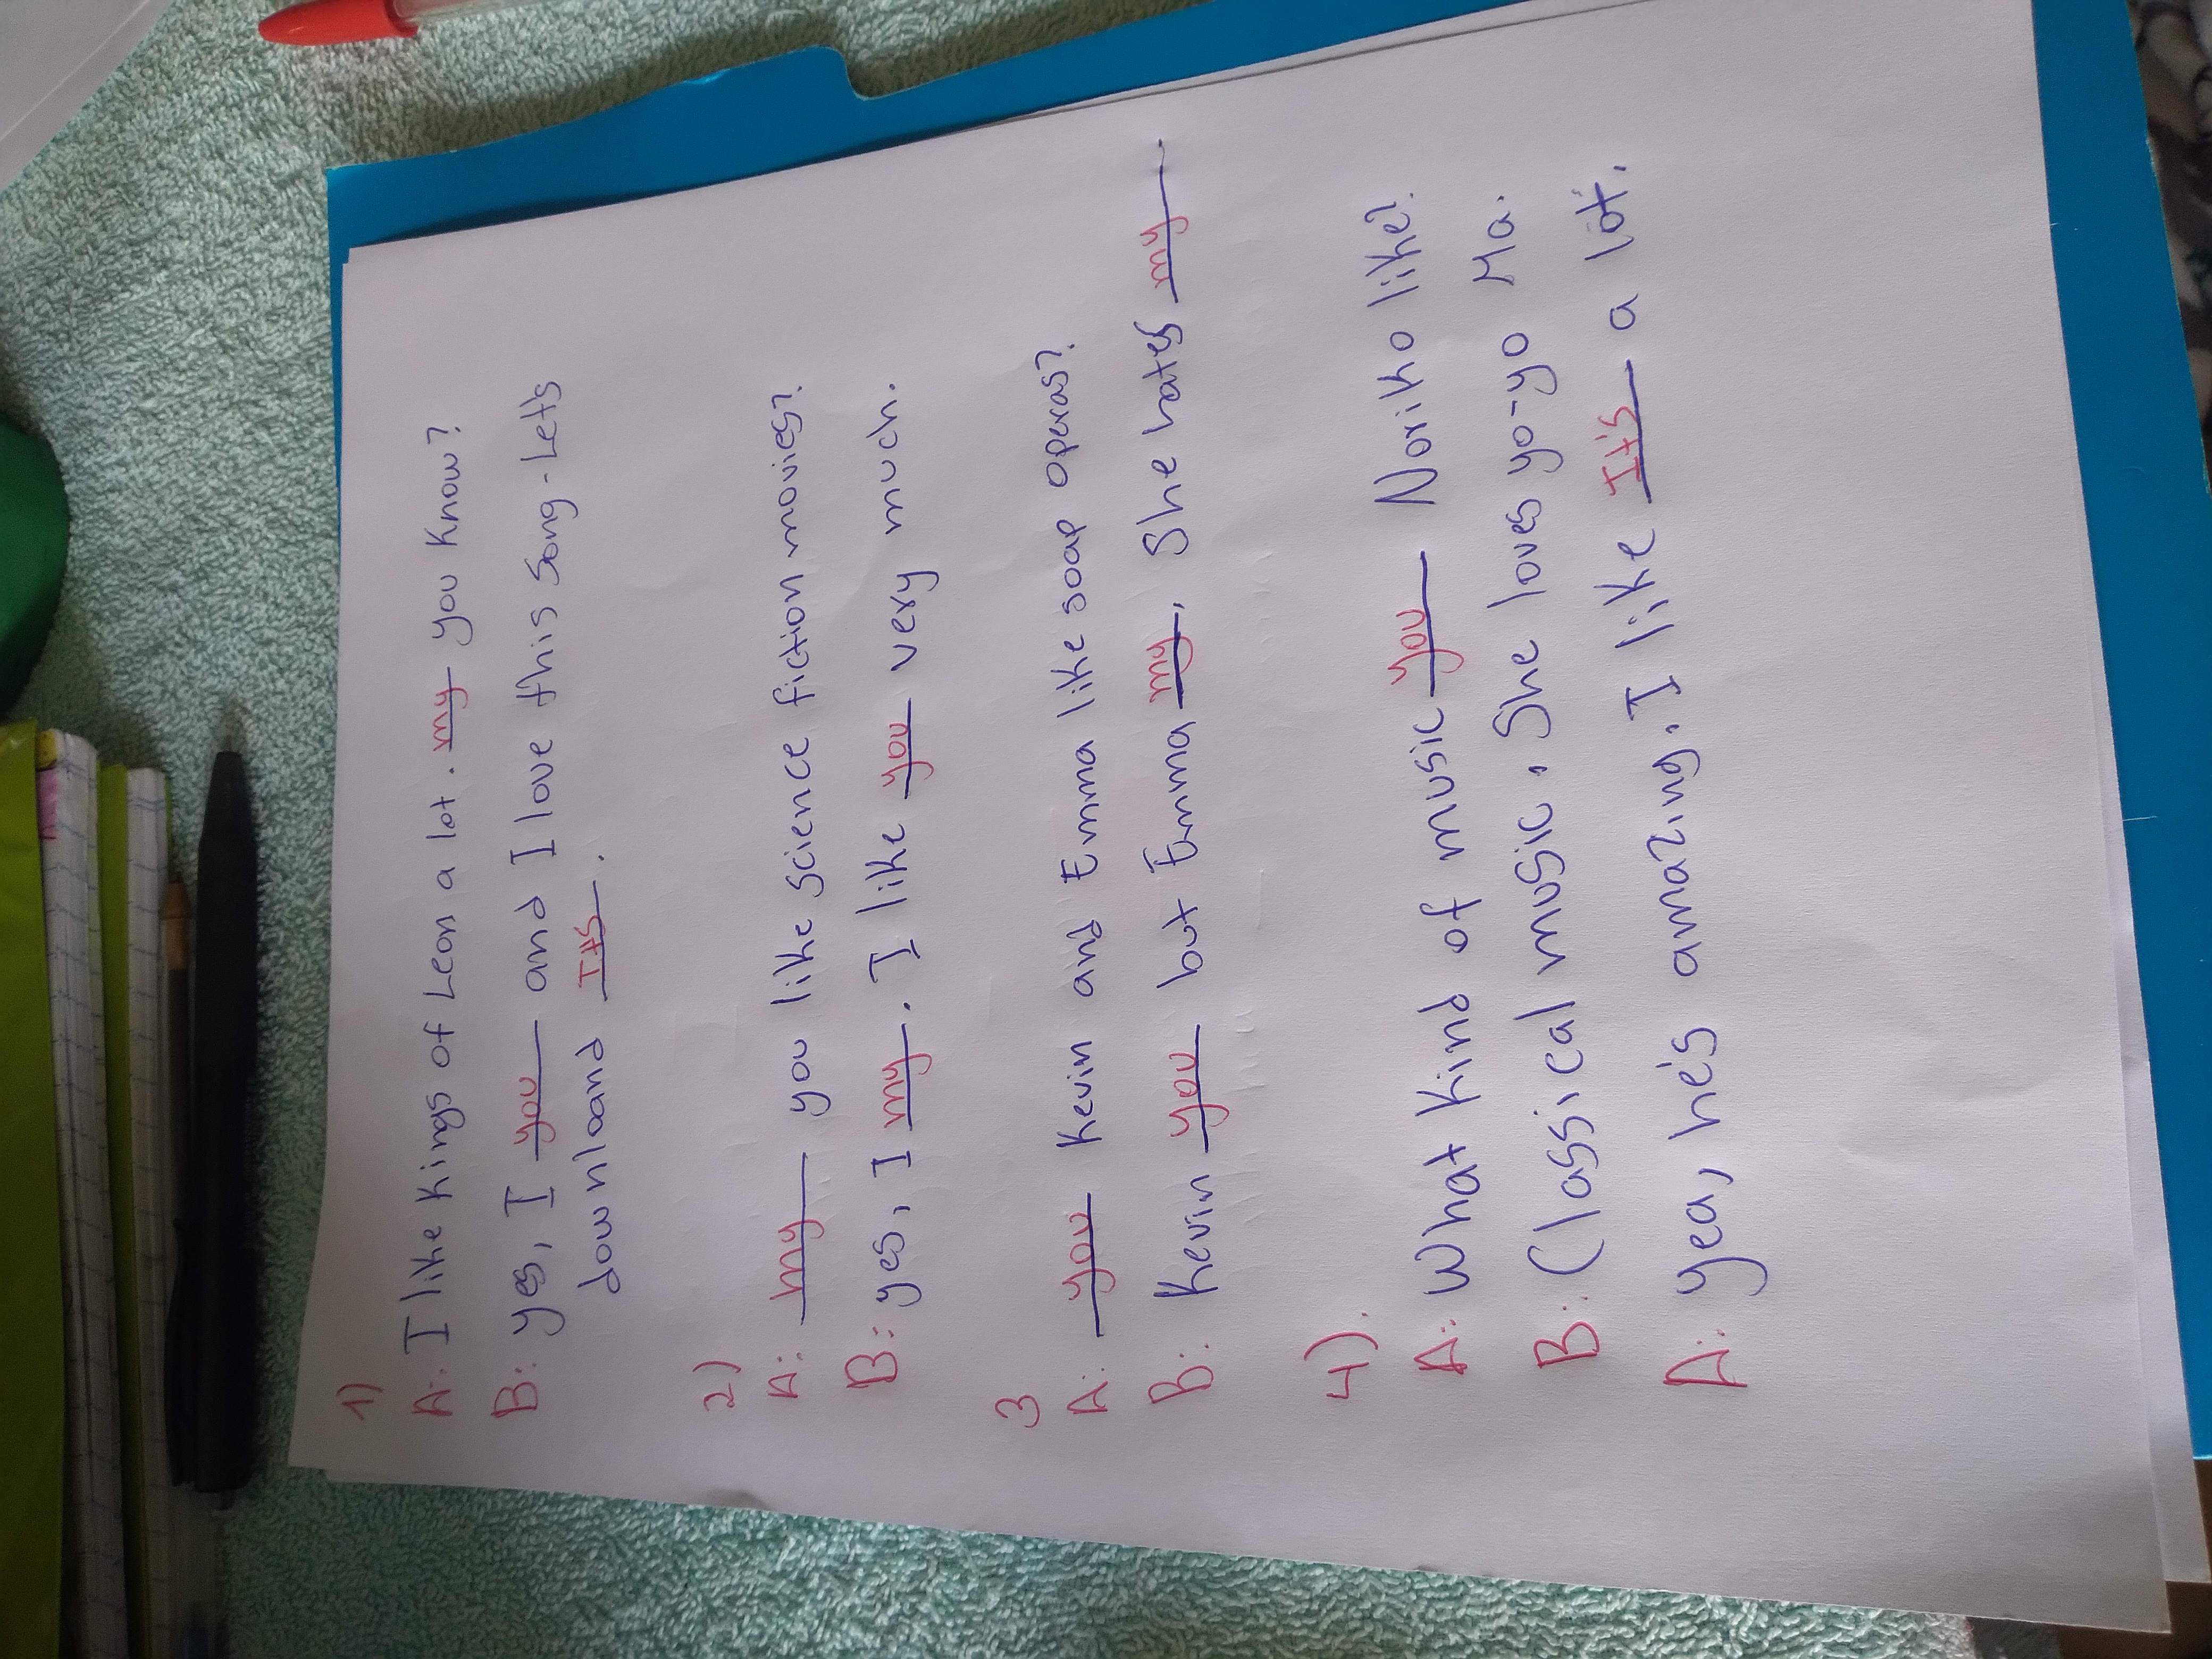 1)
A: I like Kings of Leon a lot. my you Know?
B: yes, I you and I love this song-Let's
downloand It's.
2)
A: my you like science fiction movies?
B: yes, I my. I like you very much.
3
A: you Kevin and Emma like soap operas?
B: Kevin you but Emma my. She hates my.
4).
A: What Kind of music you Noriko like?
B: Classical music. She loves yo-yo Ma.
A: yea, he's amazing. I like It's a lot.